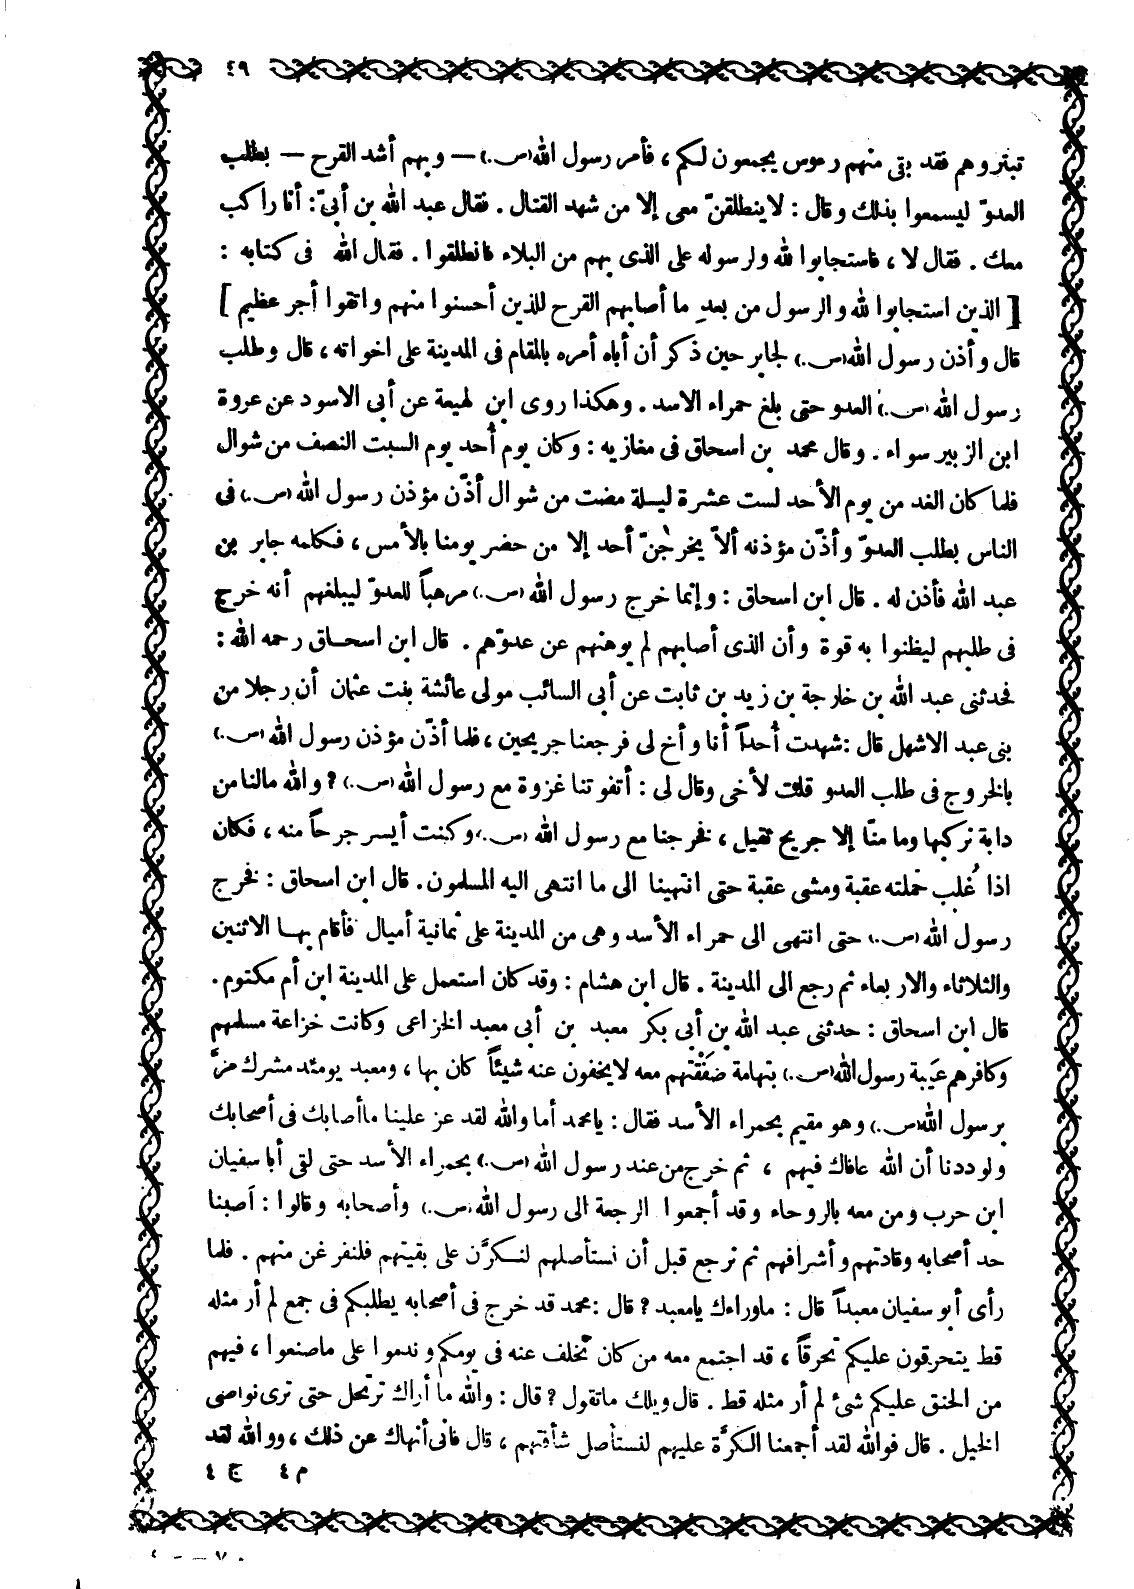 ٤٩
تبتروهم فقد بقى منهم رءوس يجمعون لكم ، فأمر رسول الله (ص.) — وبهم أشد القرح — بطلب
العدوّ ليسمعوا بذلك وقال : لاينطلقنّ معى إلا من شهد القتال . فقال عبد الله بن أبىّ : أنا راكب
معك . فقال لا ، فاستجابوا لله ولرسوله على الذى بهم من البلاء فانطلقوا . فقال الله فى كتابه :
[ الذين استجابوا لله والرسول من بعدِ ما أصابهم القرح للذين أحسنوا منهم واتقوا أجر عظيم ]
قال وأذن رسول الله (ص.) لجابر حين ذكر أن أباه أمره بالمقام فى المدينة على اخواته ، قال وطلب
رسول الله (ص.) العدو حتى بلغ حمراء الاسد . وهكذا روى ابن لهيعة عن أبى الاسود عن عروة
ابن الزبير سواء . وقال محمد بن اسحاق فى مغازيه : وكان يوم أُحد يوم السبت النصف من شوال
فلما كان الغد من يوم الأحد لست عشرة ليلة مضت من شوال أذّن مؤذن رسول الله (ص.) فى
الناس بطلب العدوّ وأذّن مؤذنه ألاّ يخرجنّ أحد إلا من حضر يومنا بالأمس ، فكلمه جابر بن
عبد الله فأذن له . قال ابن اسحاق : وإنما خرج رسول الله (ص.) مرهباً للعدوّ ليبلغهم أنه خرج
فى طلبهم ليظنوا به قوة وأن الذى أصابهم لم يوهنهم عن عدوّهم . قال ابن اسحاق رحمه الله :
فحدثنى عبد الله بن خارجة بن زيد بن ثابت عن أبى السائب مولى عائشة بنت عثمان أن رجلا من
بنى عبد الاشهل قال : شهدت أُحداً أنا وأخ لى فرجعنا جريحين ، فلما أذّن مؤذن رسول الله (ص.)
بالخروج فى طلب العدو قلت لأخى وقال لى : أتفوتنا غزوة مع رسول الله (ص.) ? والله مالنا من
دابة نركبها وما منّا إلا جريح ثقيل ، فخرجنا مع رسول الله (ص.) وكنت أيسر جرحاً منه ، فكان
اذا غُلب حملته عقبة ومشى عقبة حتى انتهينا الى ما انتهى اليه المسلمون . قال ابن اسحاق : فخرج
رسول الله (ص.) حتى انتهى الى حمراء الأسد وهى من المدينة على ثمانية أميال فأقام بها الاثنين
والثلاثاء والاربعاء ثم رجع الى المدينة . قال ابن هشام : وقد كان استعمل على المدينة ابن أم مكتوم .
قال ابن اسحاق : حدثنى عبد الله بن أبى بكر معبد بن أبى معبد الخزاعى وكانت خزاعة مسلمهم
وكافرهم عَيبة رسول الله (ص.) بتهامة صَفْقتهم معه لايخفون عنه شيئاً كان بها ، ومعبد يومئذ مشرك مرَّ
برسول الله (ص.) وهو مقيم بحمراء الأسد فقال : يامحمد أما والله لقد عز علينا ماأصابك فى أصحابك
ولوددنا أن الله عافاك فيهم ، ثم خرج من عند رسول الله (ص.) بحمراء الأسد حتى لقى أبا سفيان
ابن حرب ومن معه بالروحاء وقد أجمعوا الرجعة الى رسول الله (ص.) وأصحابه وقالوا : أصبنا
حد أصحابه وقادتهم وأشرافهم ثم نرجع قبل أن نستأصلهم لنكرَّن على بقيتهم فلنفر غن منهم . فلما
رأى أبو سفيان معبداً قال : ماوراءك يامعبد ? قال : محمد قد خرج فى أصحابه يطلبكم فى جمع لم أر مثله
قط يتحرقون عليكم تحرقاً ، قد اجتمع معه من كان تخلف عنه فى يومكم وندموا على ماصنعوا ، فيهم
من الحنق عليكم شئ لم أر مثله قط . قال ويلك ماتقول ? قال : والله ما أراك ترتحل حتى ترى نواصى
الخيل . قال فوالله لقد أجمعنا الكرَّة عليهم لنستأصل شأفتهم ، قال فانى أنهاك عن ذلك ، ووالله لقد
م٤ ج ٤